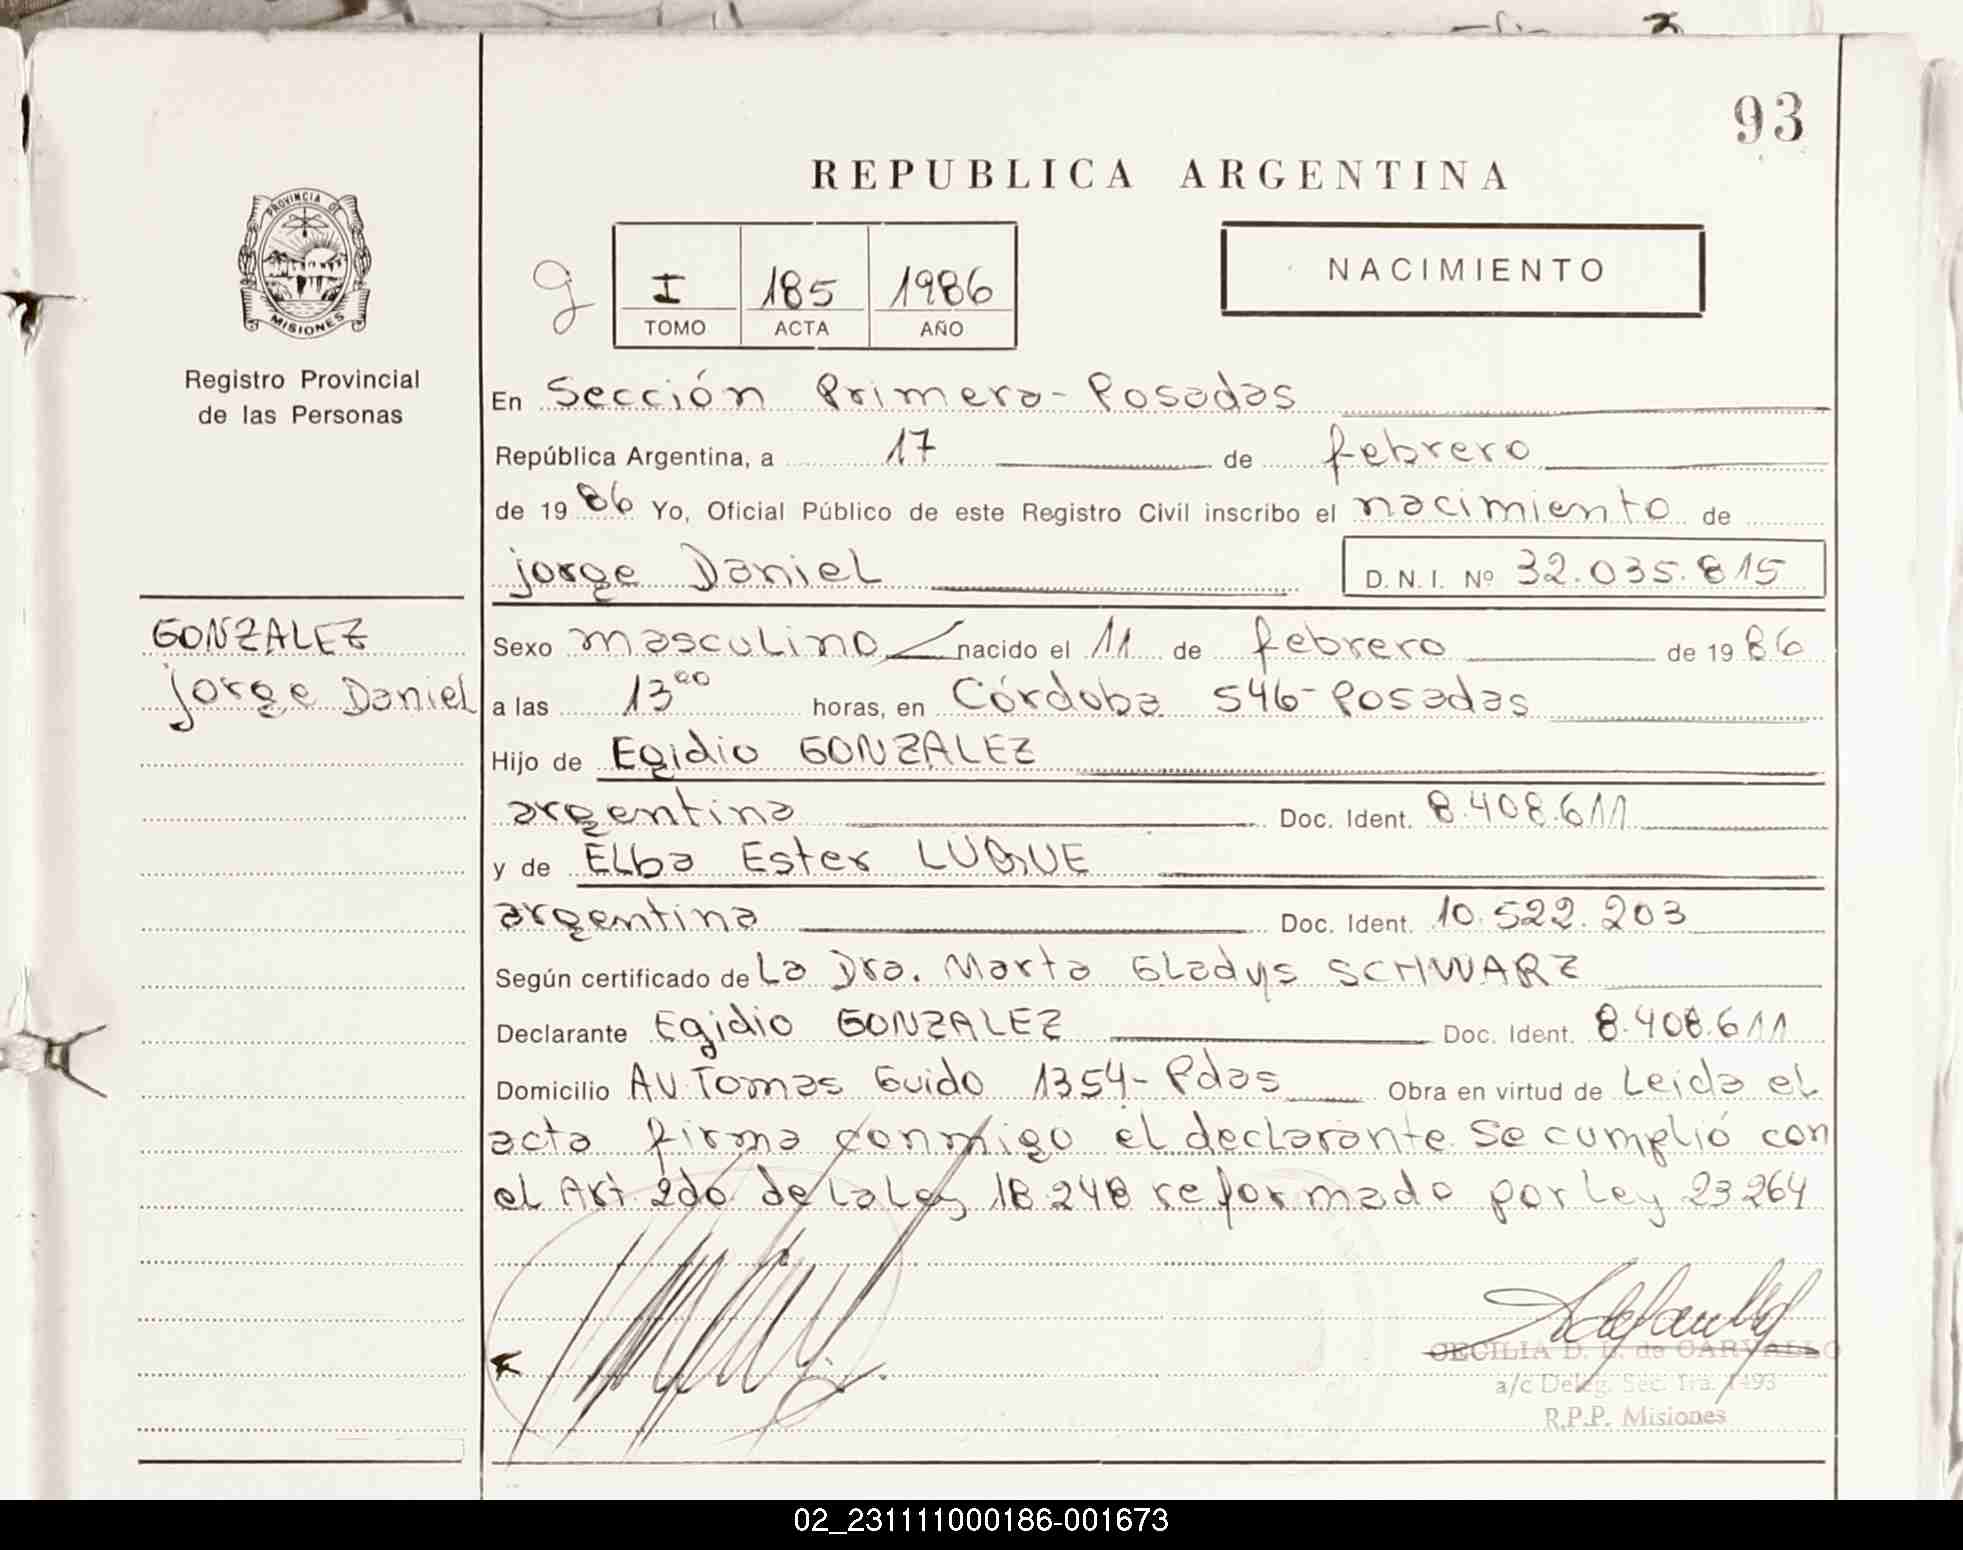 93
REPUBLICA ARGENTINA
PROVINCIA DE
MISIONES
Registro Provincial
de las Personas
I 185 1986
TOMO ACTA AÑO
NACIMIENTO
En Sección Primera - Posadas
República Argentina, a 17 de febrero
de 19 86 Yo, Oficial Público de este Registro Civil inscribo el nacimiento de
jorge Daniel D.N.I. Nº 32.035.815
GONZALEZ
jorge Daniel
Sexo masculino nacido el 11 de febrero de 19 86
a las 13 00 horas, en Córdoba 546 - Posadas
Hijo de Egidio GONZALEZ
argentina Doc. Ident. 8.408.611
y de Elba Ester LUQUE
argentina Doc. Ident. 10.522.203
Según certificado de La Dra. Marta Gladys SCHWARZ
Declarante Egidio GONZALEZ Doc. Ident. 8.408.611
Domicilio AV. Tomas Guido 1354 - Pdas Obra en virtud de Leida el
acta firma conmigo el declarante. Se cumplió con
el Art. 2do de la Ley 18.248 reformado por Ley 23.264
CECILIA D. de CARVALLO
a/c Deleg. Sec. 1ra. 1493
R.P.P. Misiones
02_231111000186-001673